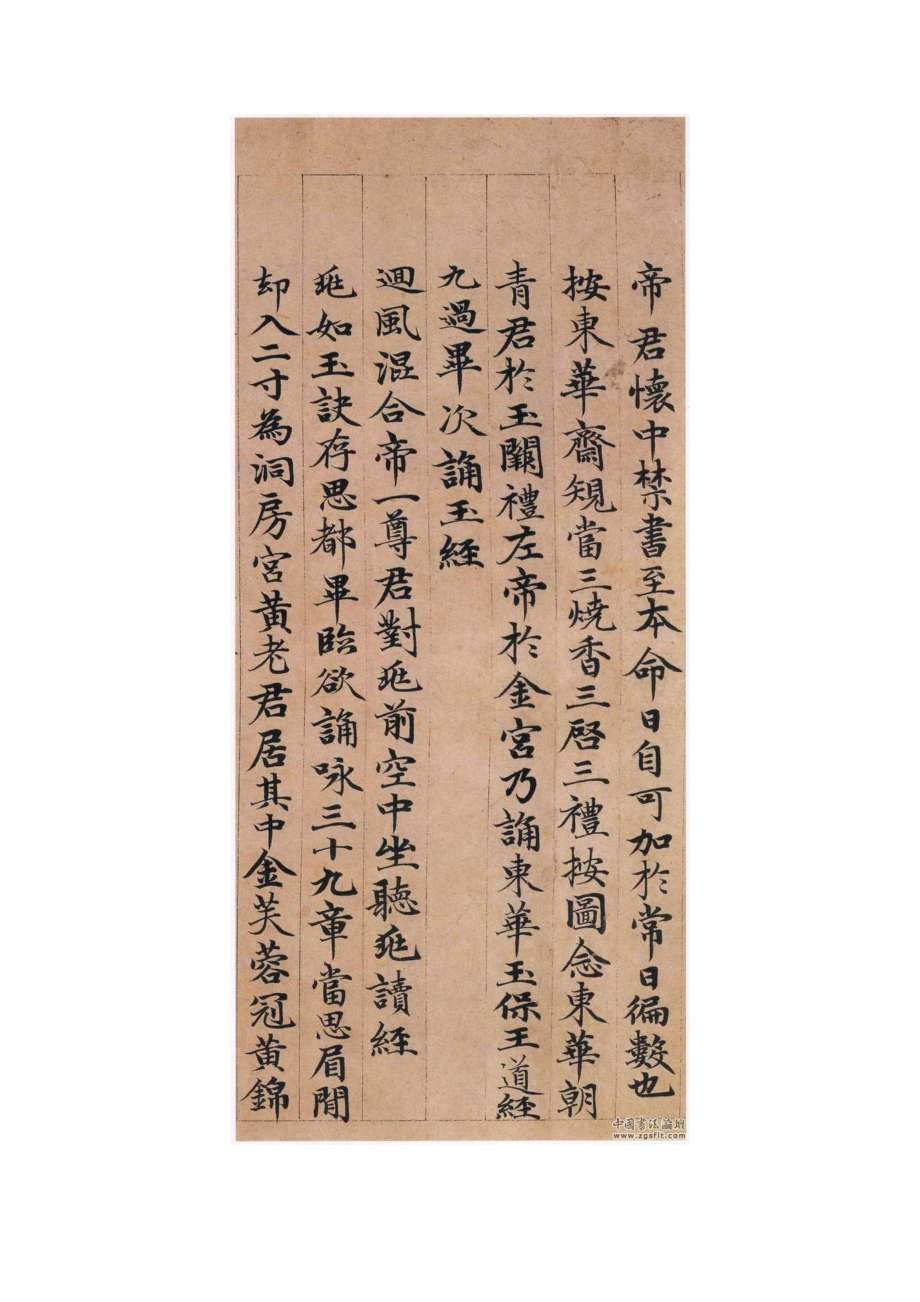 帝君懷中禁書至本命日自可加於常日徧數也
按東華齋規當三燒香三啓三禮按圖念東華朝
青君於玉闕禮左帝於金宮乃誦東華玉保王道經
九過畢次誦玉經
迴風混合帝一尊君對㢮前空中坐聽㢮讀經
㢮如玉訣存思都畢臨欲誦咏三十九章當思眉間
却入二寸為洞房宮黃老君居其中金芙蓉冠黃錦
中國书法論壇
www.zgsflt.com